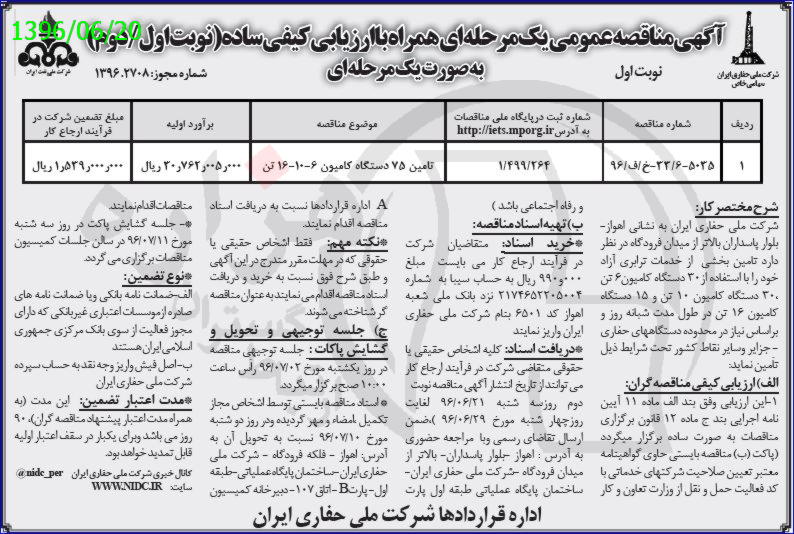 1396/06/20
آگهی مناقصه عمومی یک مرحله‌ای همراه با ارزیابی کیفی ساده (نوبت اول / دوم)
به صورت یک مرحله‌ای
شرکت ملی حفاری ایران
سهامی خاص
نوبت اول
شماره مجوز: ۱۳۹۶.۲۷۰۸
شرکت ملی نفت ایران
ردیف
شماره مناقصه
شماره ثبت در پایگاه ملی مناقصات
به آدرس http://iets.mporg.ir
موضوع مناقصه
برآورد اولیه
مبلغ تضمین شرکت در
فرآیند ارجاع کار
۱
۹۶/خ/ف-۳۳/۶-۵۰۳۵
۱/۴۹۹/۲۶۴
تامین ۷۵ دستگاه کامیون ۶-۱۰-۱۶ تن
۳۰ر۷۶۲ر۰۰۵ر۰۰۰ ریال
۱ر۵۳۹ر۰۰۰ر۰۰۰ ریال
شرح مختصر کار:
شرکت ملی حفاری ایران به نشانی اهواز-
بلوار پاسداران بالاتر از میدان فرودگاه در نظر
دارد تامین بخشی از خدمات ترابری آزاد
خود را با استفاده از ۳۰ دستگاه کامیون ۶ تن
، ۳۰ دستگاه کامیون ۱۰ تن و ۱۵ دستگاه
کامیون ۱۶ تن در طول مدت شبانه روز و
براساس نیاز در محدوده دستگاههای حفاری
- جزایر وسایر نقاط کشور تحت شرایط ذیل
تأمین نماید:
الف) ارزیابی کیفی مناقصه گران:
۱-این ارزیابی وفق بند الف ماده ۱۱ آیین
نامه اجرایی بند ج ماده ۱۲ قانون برگزاری
مناقصات به صورت ساده برگزار میگردد
(پاکت ب) مناقصه بایستی حاوی گواهینامه
معتبر تعیین صلاحیت شرکتهای خدماتی با
کد فعالیت حمل و نقل از وزارت تعاون و کار
و رفاه اجتماعی باشد )
ب) تهیه اسناد مناقصه:
*خرید اسناد: متقاضیان شرکت
در فرآیند ارجاع کار می بایست مبلغ
۹۹۰و۰۰۰ ریال به حساب سیبا به شماره
۲۱۷۴۶۵۲۲۰۵۰۰۴ نزد بانک ملی شعبه
اهواز کد ۶۵۰۱ بنام شرکت ملی حفاری
ایران واریز نمایند
*دریافت اسناد: کلیه اشخاص حقیقی یا
حقوقی متقاضی شرکت در فرآیند ارجاع کار
می توانند از تاریخ انتشار آگهی مناقصه نوبت
دوم روزسه شنبه ۹۶/۰۶/۲۱ لغایت
روزچهار شنبه مورخ ۹۶/۰۶/۲۹ )،ضمن
ارسال تقاضای رسمی وبا مراجعه حضوری
به آدرس : اهواز -بلوار پاسداران- بالاتر از
میدان فرودگاه -شرکت ملی حفاری ایران-
ساختمان پایگاه عملیاتی طبقه اول پارت
A اداره قراردادها نسبت به دریافت اسناد
مناقصه اقدام نمایند.
*نکته مهم: فقط اشخاص حقیقی یا
حقوقی که در مهلت مقرر مندرج در این آگهی
و طبق شرح فوق نسبت به خرید و دریافت
اسناد مناقصه اقدام می نمایند به عنوان مناقصه
گر شناخته می شوند.
ج) جلسه توجیهی و تحویل و
گشایش پاکات : جلسه توجیهی مناقصه
در روز یکشنبه مورخ ۹۶/۰۷/۰۲ رأس ساعت
۱۰:۰۰ صبح برگزار میگردد.
* اسناد مناقصه بایستی توسط اشخاص مجاز
تکمیل ،امضاء و مهر گردیده ودر روز دو شنبه
مورخ ۹۶/۰۷/۱۰ نسبت به تحویل آن به
آدرس: اهواز - فلکه فرودگاه - شرکت ملی
حفاری ایران-ساختمان پایگاه عملیاتی-طبقه
اول- پارت B-اتاق ۱۰۷-دبیرخانه کمیسیون
مناقصات اقدام نمایند.
*- جلسه گشایش پاکت در روز سه شنبه
مورخ ۹۶/۰۷/۱۱ در سالن جلسات کمیسیون
مناقصات برگزار می گردد.
*نوع تضمین:
الف-ضمانت نامه بانکی ویا ضمانت نامه های
صادره از موسسات اعتباری غیربانکی که دارای
مجوز فعالیت از سوی بانک مرکزی جمهوری
اسلامی ایران هستند
ب-اصل فیش واریز وجه نقد به حساب سپرده
شرکت ملی حفاری ایران
*مدت اعتبار تضمین: این مدت (به
همراه مدت اعتبار پیشنهاد مناقصه گران)، ۹۰
روز می باشد وبرای یکبار در سقف اعتبار اولیه
قابل تمدید خواهد بود.
کانال خبری شرکت ملی حفاری ایران @nidc_per
سایت: WWW.NIDC.IR
اداره قراردادها شرکت ملی حفاری ایران